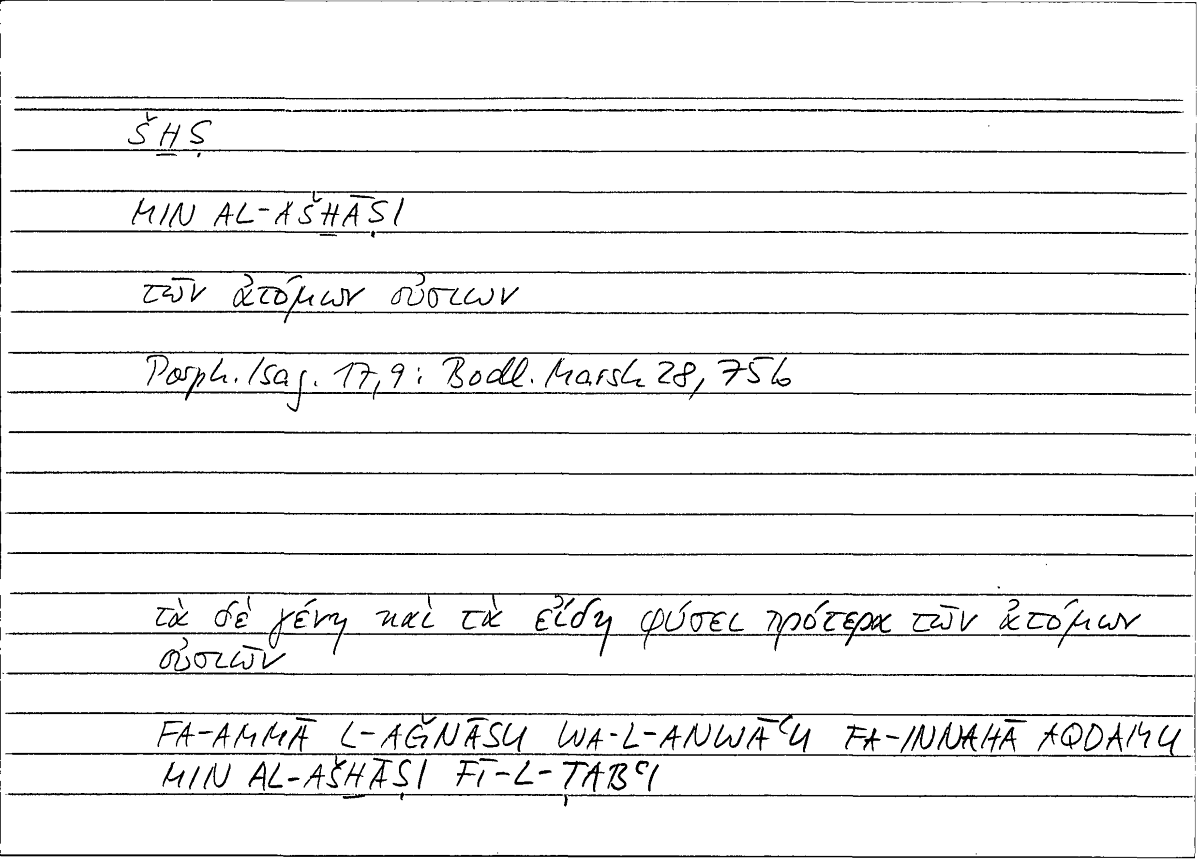 ŠH̱Ṣ
MIN AL-AŠH̱ĀṢI
τῶν ἀτόμων οὐσιων
Porph. Isag. 17,9: Bodl. Marsh 28, 75b
τὰ δὲ γένη καὶ τὰ εἴδη φύσει πρότερα τῶν ἀτόμων
οὐσιῶν
FA-AMMĀ L-AǦNĀSU WA-L-ANWĀʿU FA-INNAHĀ AQDAMU
MIN AL-AŠH̱ĀṢI FĪ-L-ṬABʿI